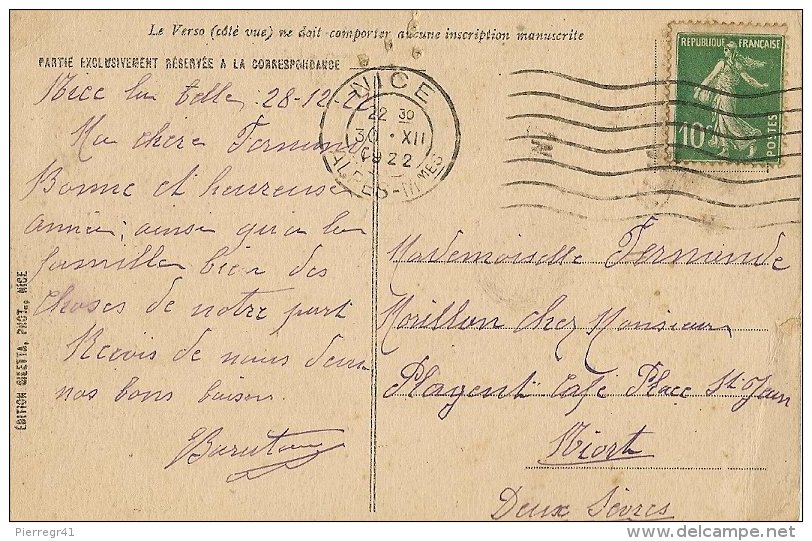 Le Verso (côté vue) ne doit comporter aucune inscription manuscrite
PARTIE EXCLUSIVEMENT RÉSERVÉE A LA CORRESPONDANCE
Nice la belle 28-12-22
Ma chere Fernande
Bonne et heureuse
année, ainsi qu'a la
famille bien des
choses de notre part
Recois de nous deux
nos bons baisers
ÉDITION GILETTA, PHOT., NICE
NICE
22 30
30 · XII
1922
RÉPUBLIQUE FRANÇAISE
10c
POSTES
Mademoiselle Fernande
Morillon chez Monsieur
Plagent Café Place St Jean
Niort
Deux Sèvres
Pierregr41
delcampe.net